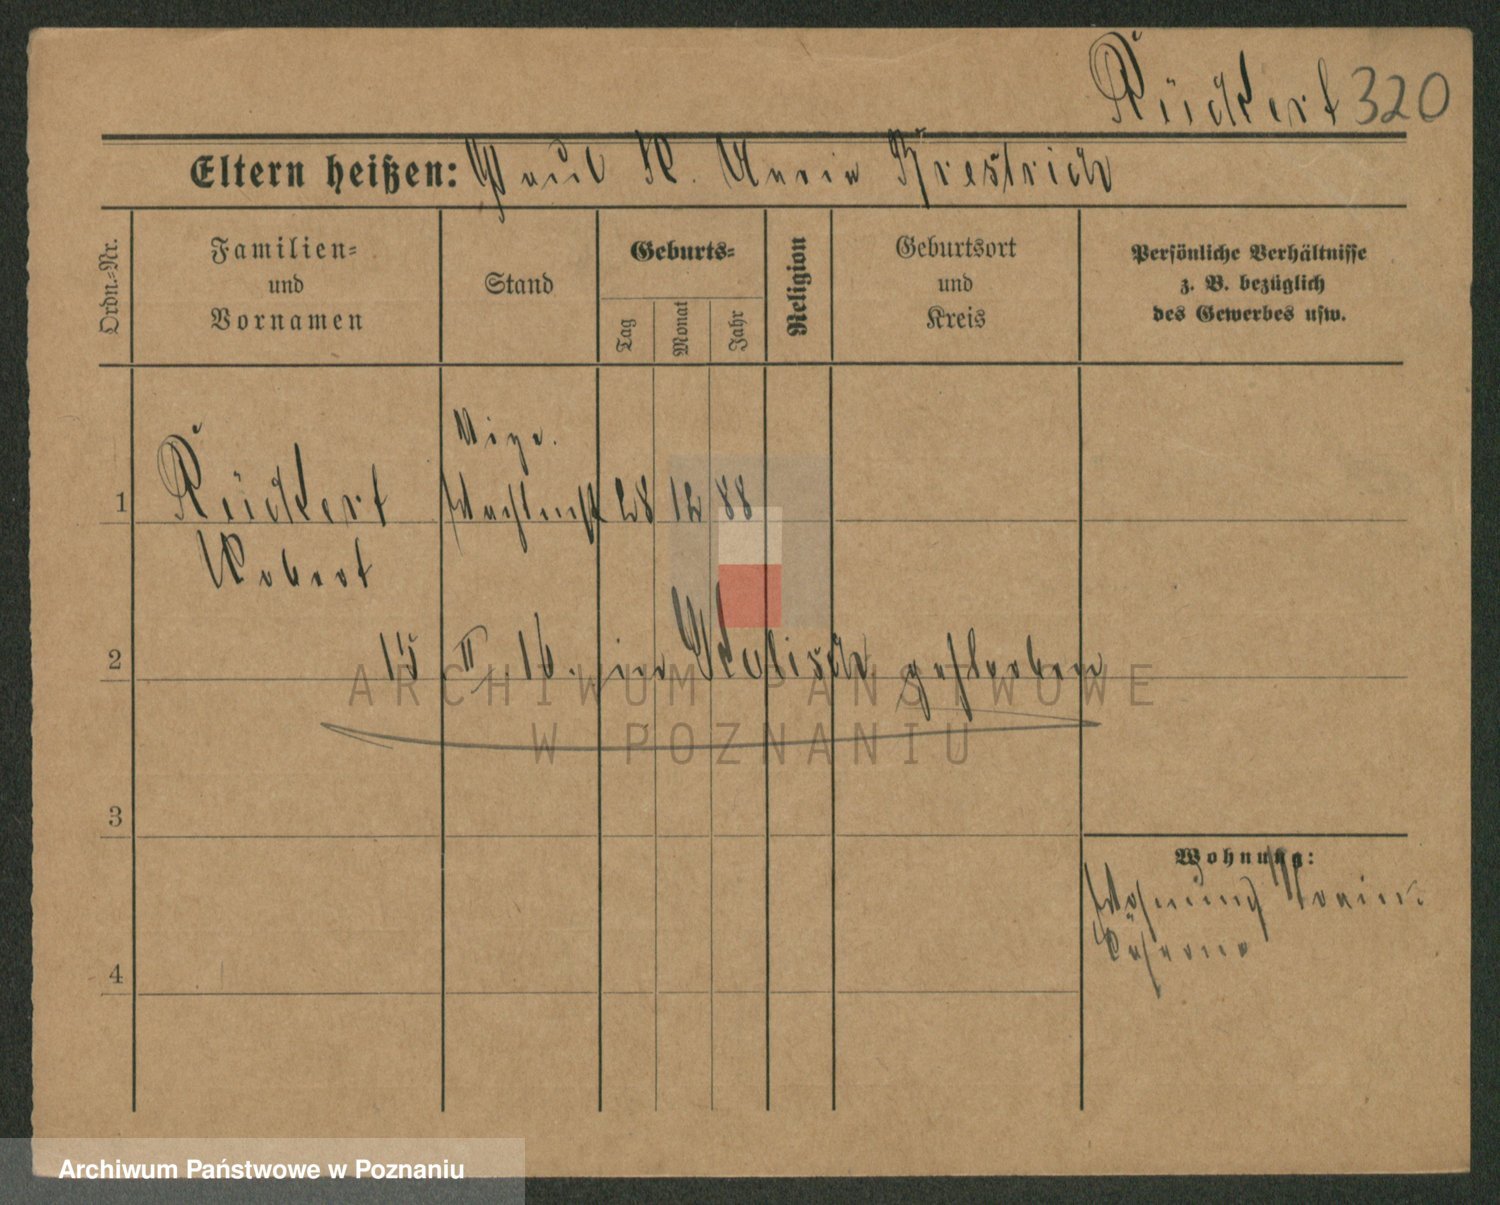 Rückert 320
Eltern heißen: Paul R. Maria
Ordn.-Nr.
Familien-
und
Vornamen
Stand
Geburts-
Tag
Monat
Jahr
Religion
Geburtsort
und
Kreis
Persönliche Verhältnisse
z. B. bezüglich
des Gewerbes usw.
Vize.
1 Rückert Wachtmstr 28 12 88
Robert
2 15 II 16. in gestorben
ARCHIWUM PAŃSTWOWE
W POZNANIU
3
Wohnung:
Wohnung
Kaserne
4
Archiwum Państwowe w Poznaniu